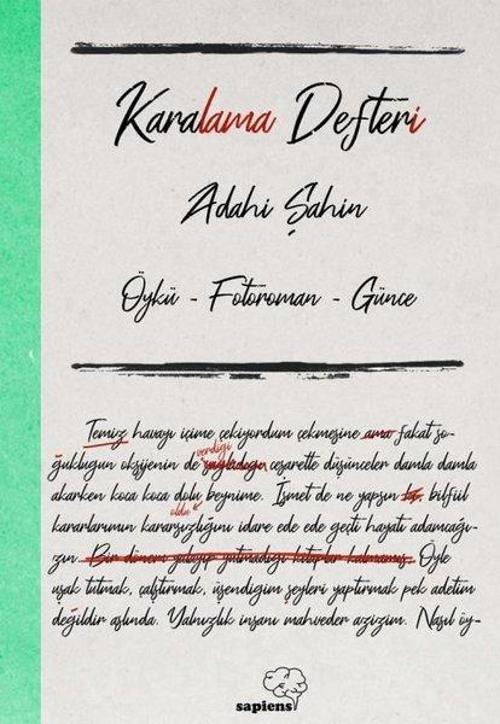 Karalama Defteri
Adahi Şahin
Öykü - Fotoroman - Günce
Temiz havayı içime çekiyordum çekmesine ama fakat so-
verdiği
ğukluğun oksijenin de sağladığı cesarette düşünceler damla damla
akarken koca koca dolu beynime. İsmet de ne yapsın bilfiil
oldu
kararlarımın kararsızlığını idare ede ede geçti hayatı adamcağı-
zın. Bir dönem yalayıp yutmadığı kitaplar kalmamış. Öyle
uşak tutmak, çalıştırmak, üşendiğim şeyleri yaptırmak pek adetim
değildir aslında. Yalnızlık insanı mahveder azizim. Nasıl öy-
sapiens